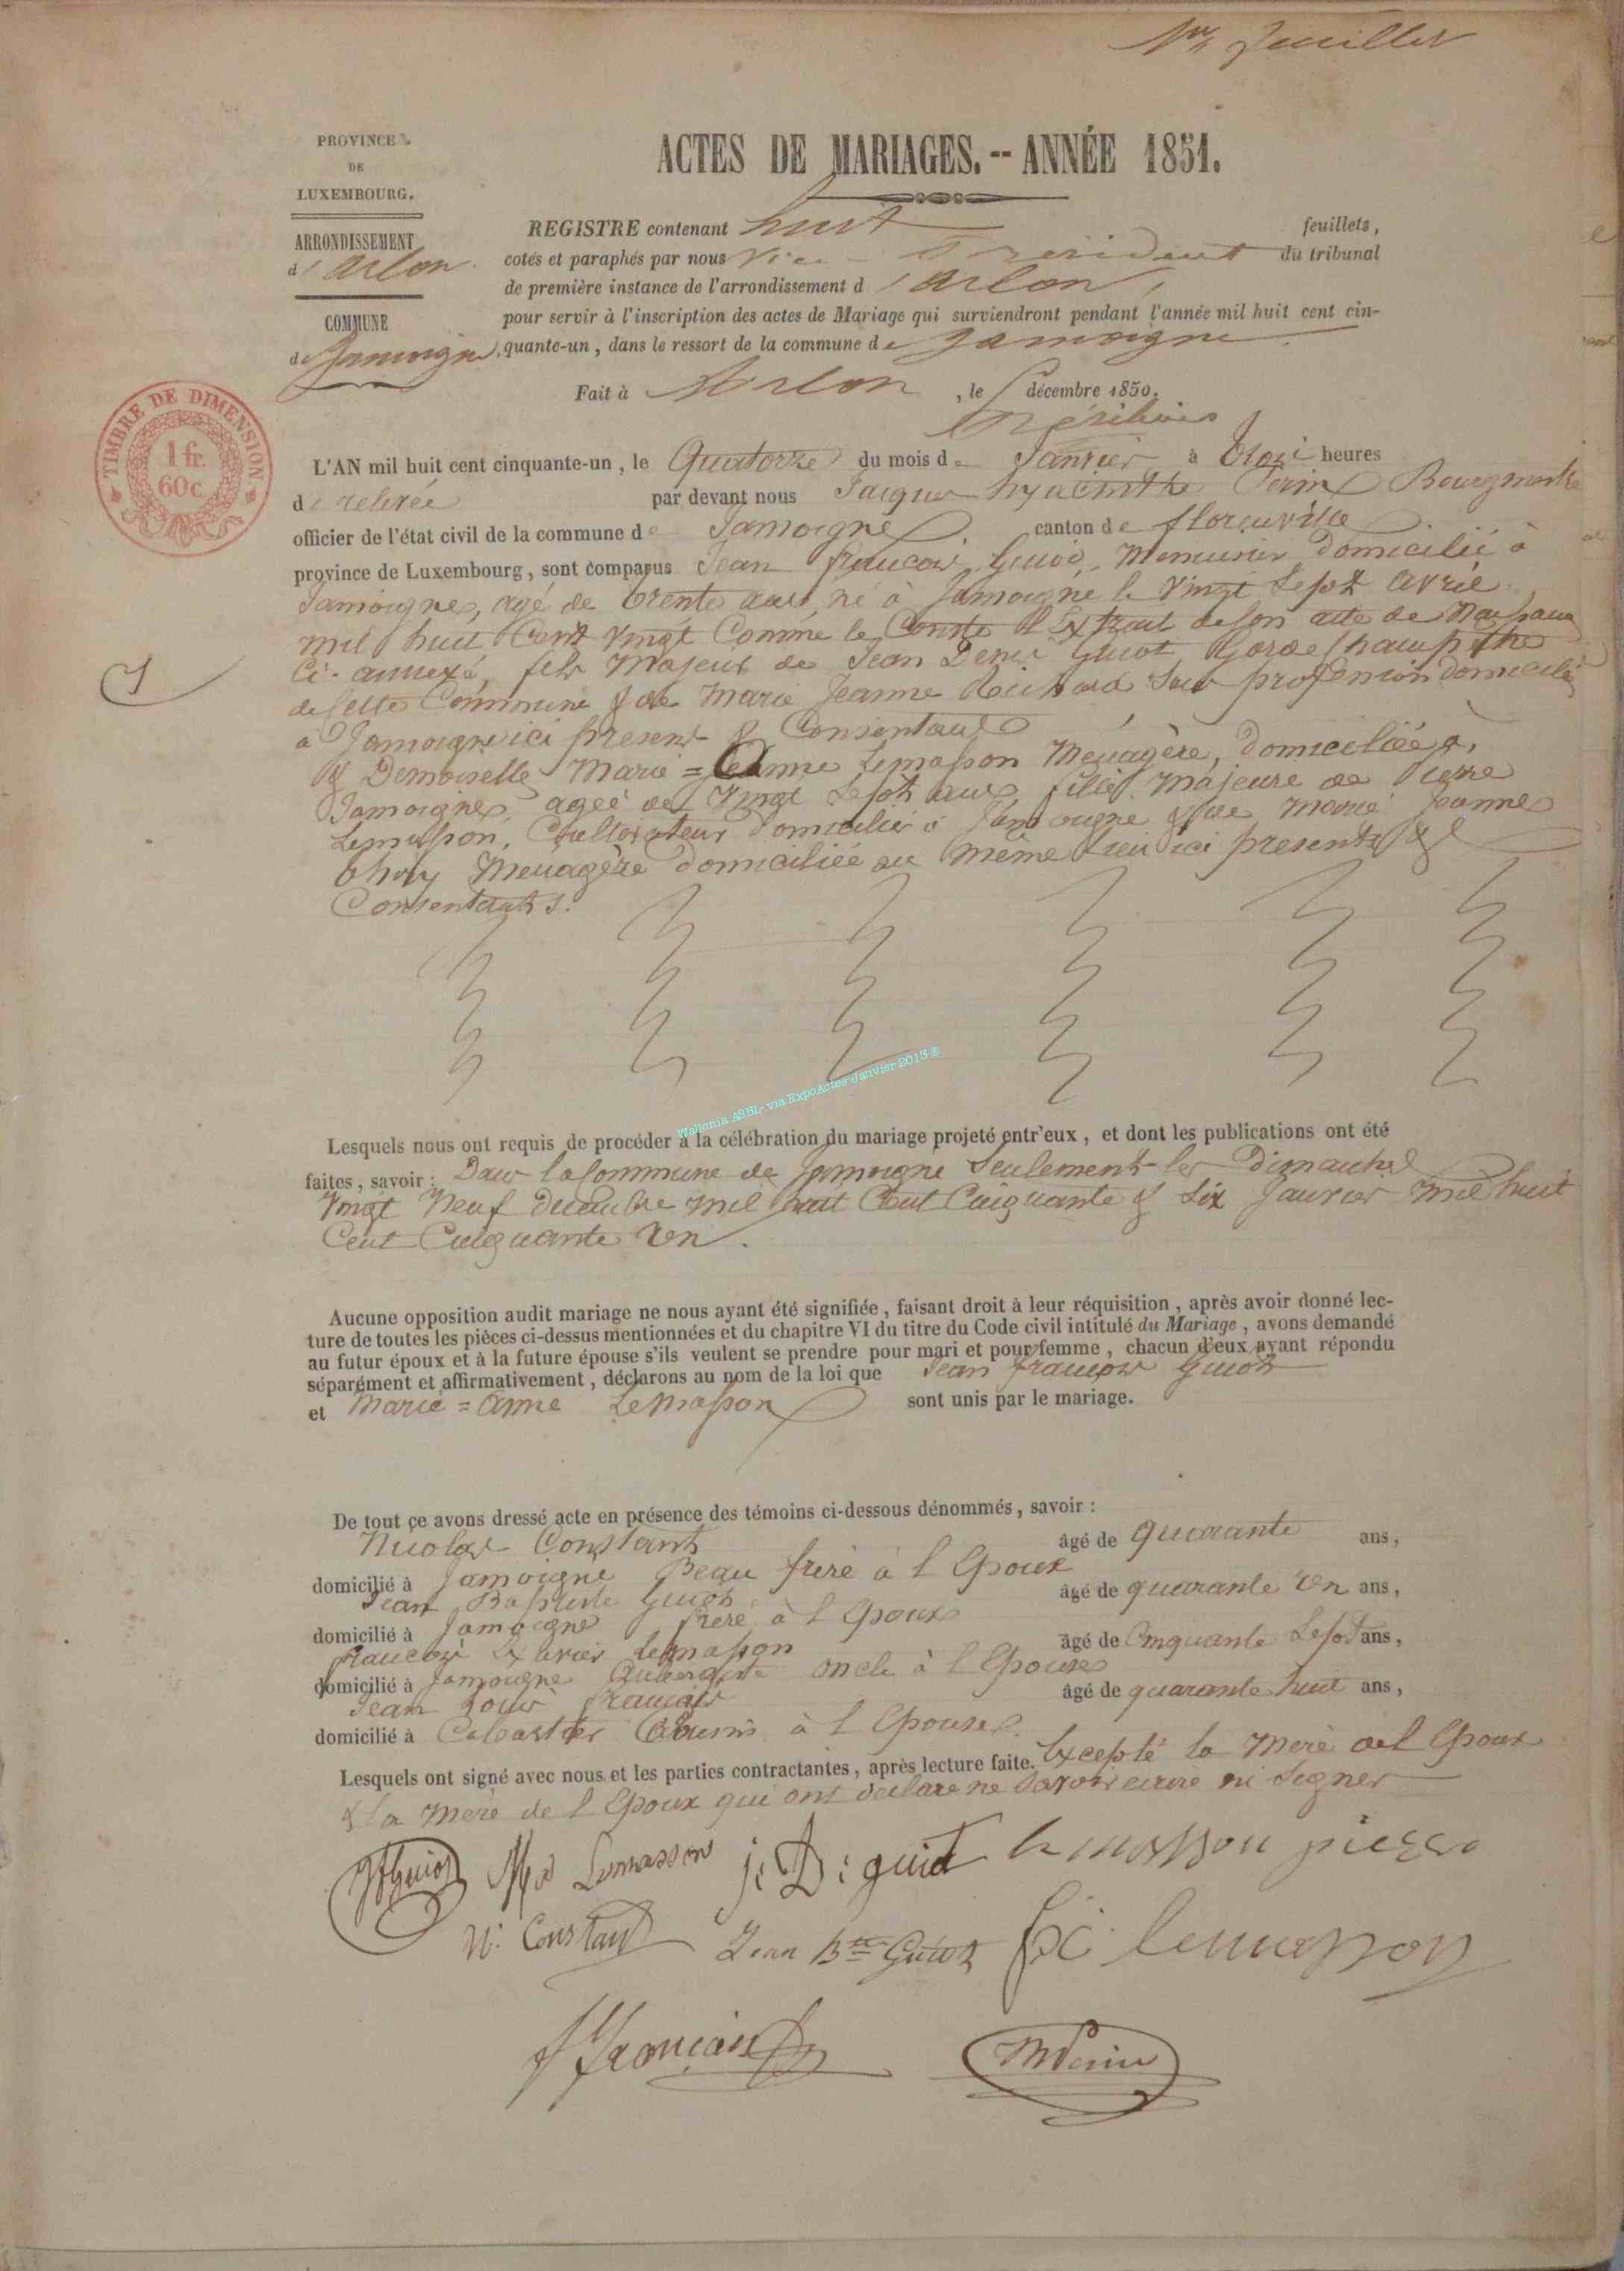 1er feuillet
PROVINCE
DE
LUXEMBOURG.
ARRONDISSEMENT
d'Arlon
COMMUNE
de Jamoigne
TIMBRE DE DIMENSION
1 fr.
60c.
ACTES DE MARIAGES.--ANNÉE 1851.
REGISTRE contenant huit feuillets,
cotés et paraphés par nous Vice-Président du tribunal
de première instance de l'arrondissement d'Arlon,
pour servir à l'inscription des actes de Mariage qui surviendront pendant l'année mil huit cent cin-
quante-un, dans le ressort de la commune de Jamoigne.
Fait à Arlon, le décembre 1850.
L'AN mil huit cent cinquante-un, le Quatorze du mois de Janvier à trois heures
de relevée par devant nous Jacques hyacinthe Perin Bourgmestre
officier de l'état civil de la commune de Jamoigne canton de florenville
province de Luxembourg, sont comparus Jean francois Guiot, Menuisier domicilié à
Jamoigne, agé de trente ans, né à Jamoigne le Vingt Sept avril
mil huit Cent Vingt Comme le Conste l'Extrait de son acte de Naissance
1
Ci-annexé, fils Majeur de Jean Denis Guiot Garde Champêtre
de cette Commune & de Marie Jeanne Richard Sans profession domiciliés
à Jamoigne ici présent & Consentant
& Demoiselle Marie=Anne Lemasson Menagère, domiciliée à
Jamoigne, agée de Vingt Sept ans fille Majeure de Pierre
Lemasson, Cultivateur domicilié à Jamoigne & de Marie Jeanne
thiry Menagère domiciliée au même Lieu ici présents &
Consentants.
Wallonia ASBL- via ExpoActes Janvier 2013 ©
Lesquels nous ont requis de procéder à la célébration du mariage projeté entr'eux, et dont les publications ont été
faites, savoir : Dans la Commune de Jamoigne Seulement les Dimanches
Vingt Neuf decembre mil huit Cent Cinquante & Six Janvier mil huit
Cent Cinquante Un.
Aucune opposition audit mariage ne nous ayant été signifiée, faisant droit à leur réquisition, après avoir donné lec-
ture de toutes les pièces ci-dessus mentionnées et du chapitre VI du titre du Code civil intitulé du Mariage, avons demandé
au futur époux et à la future épouse s'ils veulent se prendre pour mari et pour femme, chacun d'eux ayant répondu
séparément et affirmativement, déclarons au nom de la loi que Jean francois Guiot
et Marie=Anne Lemasson sont unis par le mariage.
De tout ce avons dressé acte en présence des témoins ci-dessous dénommés, savoir :
Nicolas Constant âgé de quarante ans,
domicilié à Jamoigne Beau frère à l Epoux
Jean Baptiste Guiot âgé de quarante Un ans,
domicilié à Jamoigne frère à l Epoux
francois Xavier Lemasson âgé de Cinquante Sept ans,
domicilié à Jamoigne Aubergiste oncle à l Epouse
Jean Louis francois âgé de quarante huit ans,
domicilié à Cousin à l Epouse.
Lesquels ont signé avec nous et les parties contractantes, après lecture faite. Excepté la Mère de l Epoux
& la Mère de l Epoux qui ont declaré ne Savoir écrire ni Signer
JfGuiot Lemasson j: D: guiot lemasson pierre
N: Constant Jean Bte Guiot fx lemasson
francois Perin